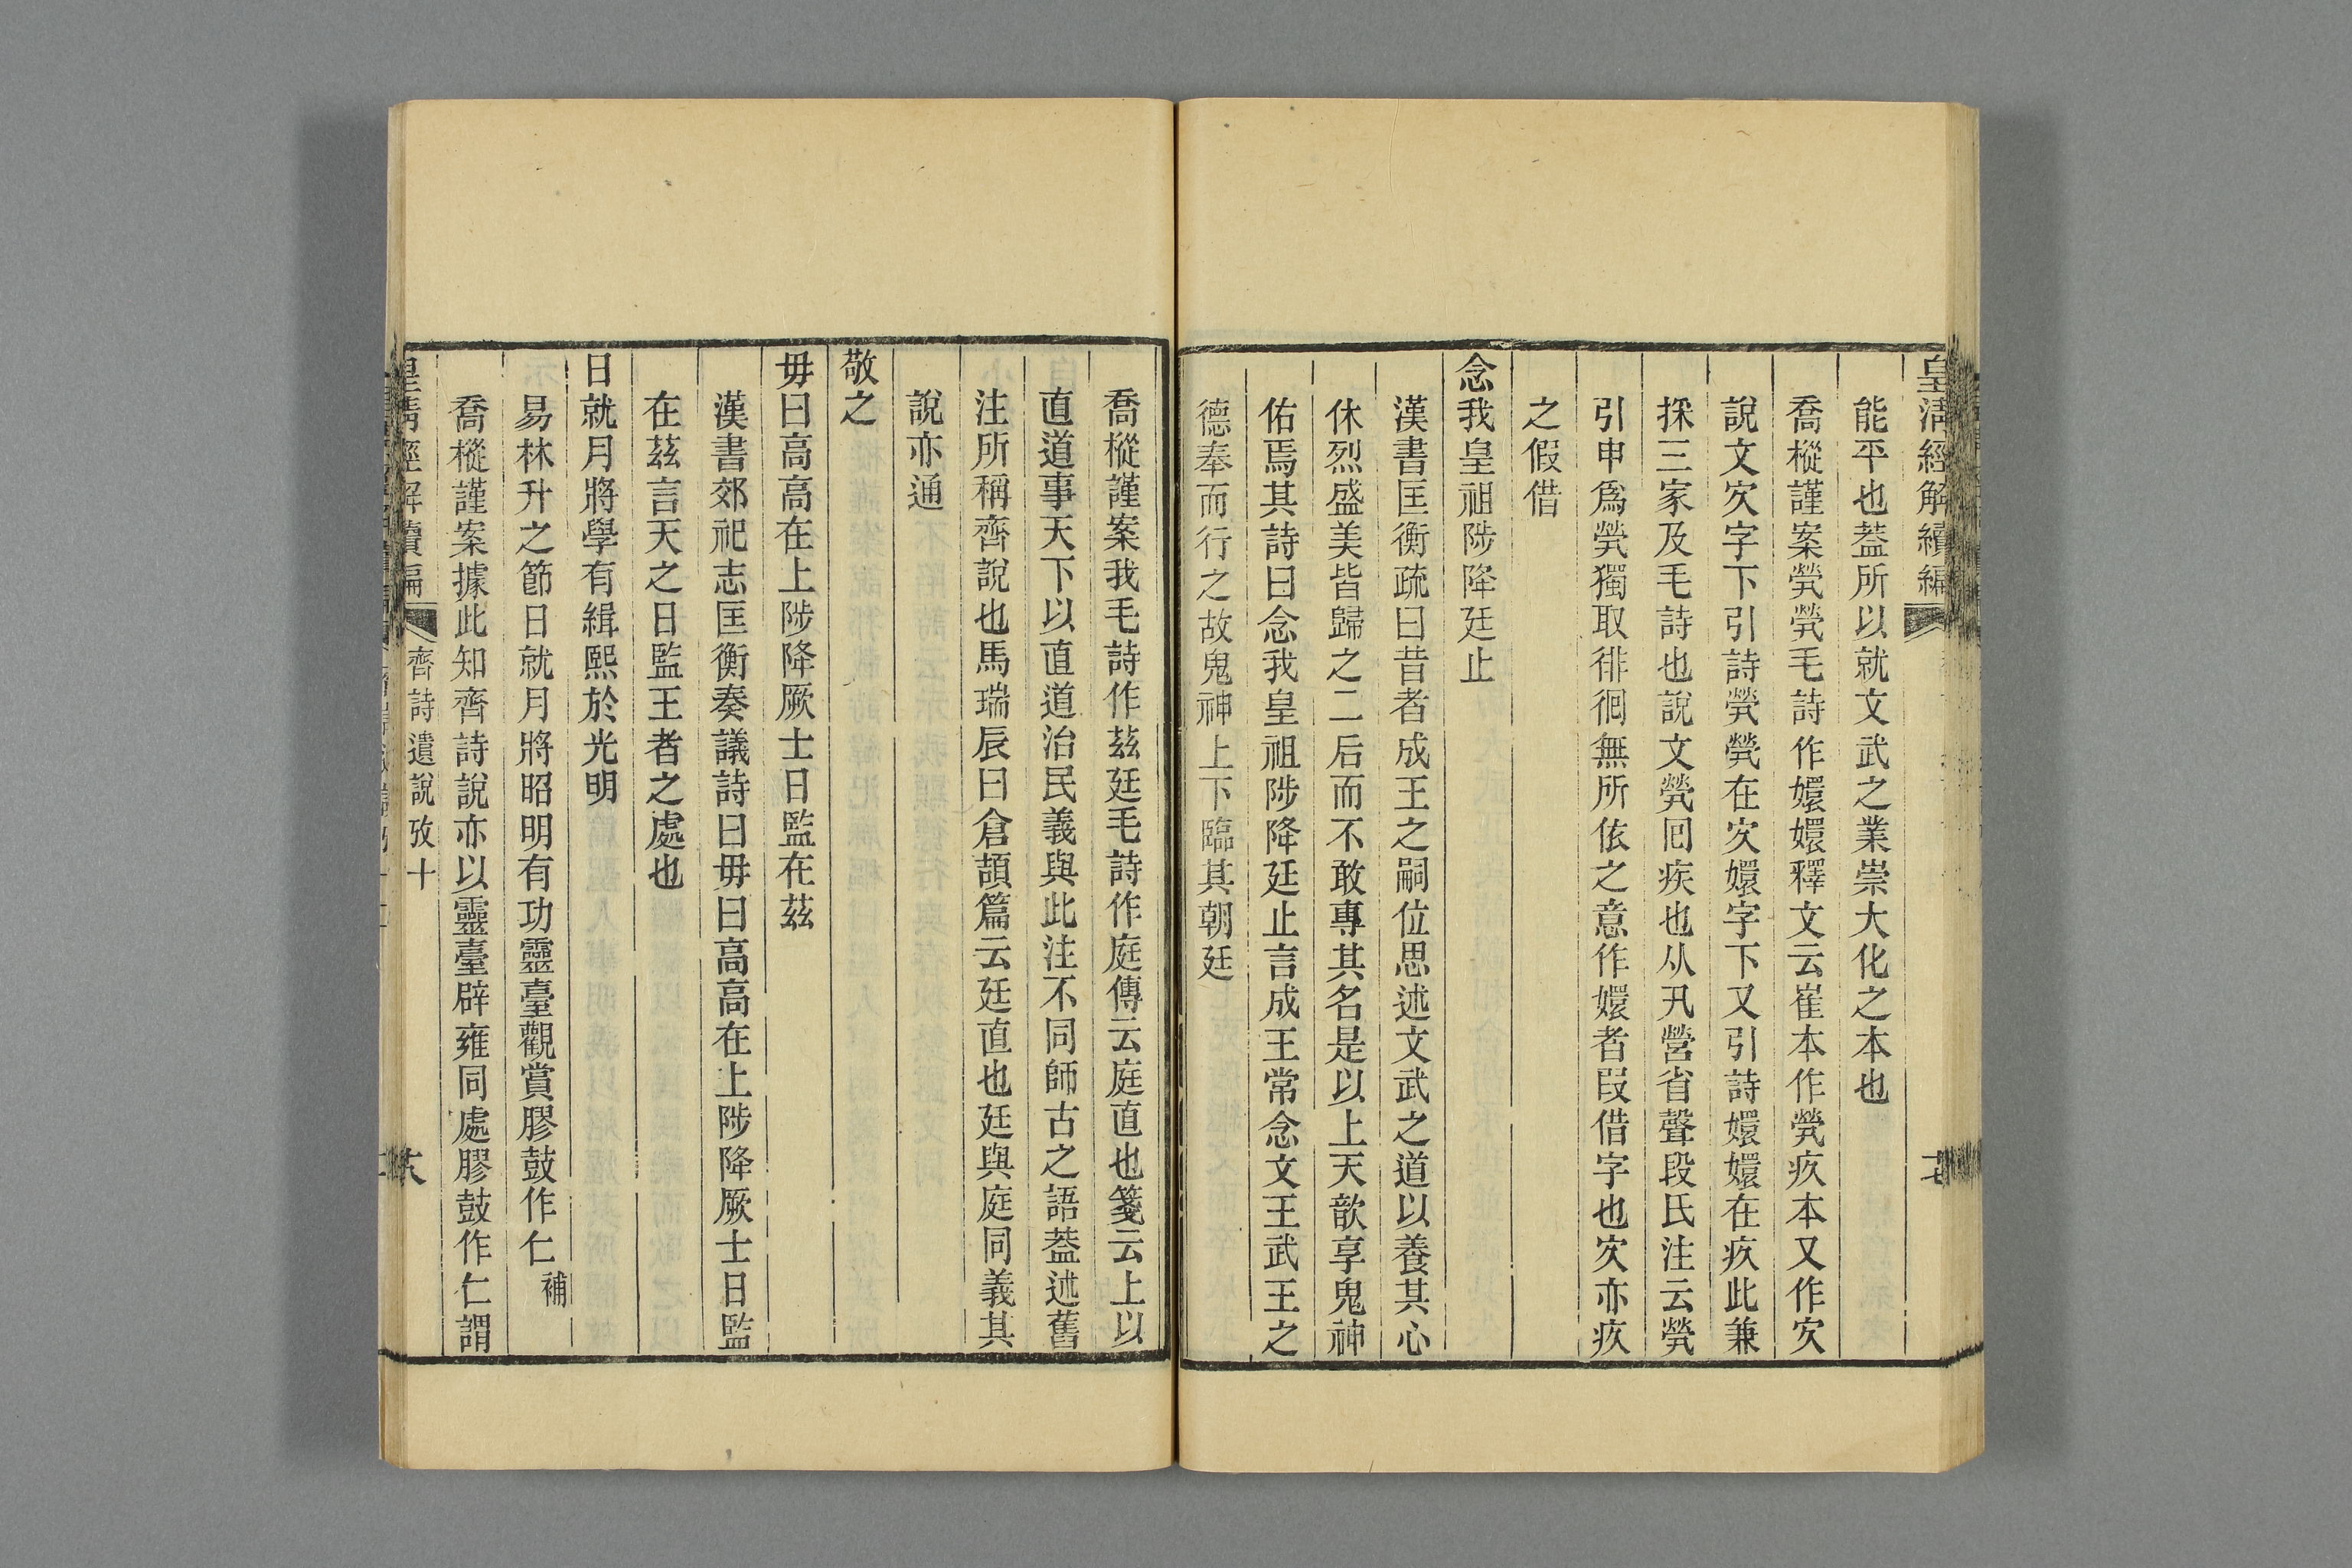 皇清經解續編
能平也葢所以就文武之業崇大化之本也
喬樅謹案煢煢毛詩作嬛嬛釋文云崔本作煢疚本又作㝌
說文㝌字下引詩煢煢在㝌嬛字下又引詩嬛嬛在疚此兼
採三家及毛詩也說文煢回疾也从卂營省聲段氏注云煢
引申爲煢獨取徘徊無所依之意作嬛者叚借字也㝌亦疚
之假借
念我皇祖陟降廷止
漢書匡衡疏曰昔者成王之嗣位思述文武之道以養其心
休烈盛美皆歸之二后而不敢專其名是以上天歆享鬼神
佑焉其詩曰念我皇祖陟降廷止言成王常念文王武王之
德奉而行之故鬼神上下臨其朝廷
喬樅謹案我毛詩作茲廷毛詩作庭傳云庭直也箋云上以
直道事天下以直道治民義與此注不同師古之語葢述舊
注所稱齊說也馬瑞辰曰倉頡篇云廷直也廷與庭同義其
說亦通
敬之
毋曰高高在上陟降厥士日監在茲
漢書郊祀志匡衡奏議詩曰毋曰高高在上陟降厥士日監
在茲言天之日監王者之處也
日就月將學有緝熙於光明
易林升之節日就月將昭明有功靈臺觀賞膠鼓作仁補
喬樅謹案據此知齊詩說亦以靈臺辟雍同處膠鼓作仁謂
皇清經解續編 齊詩遺說攷十 六